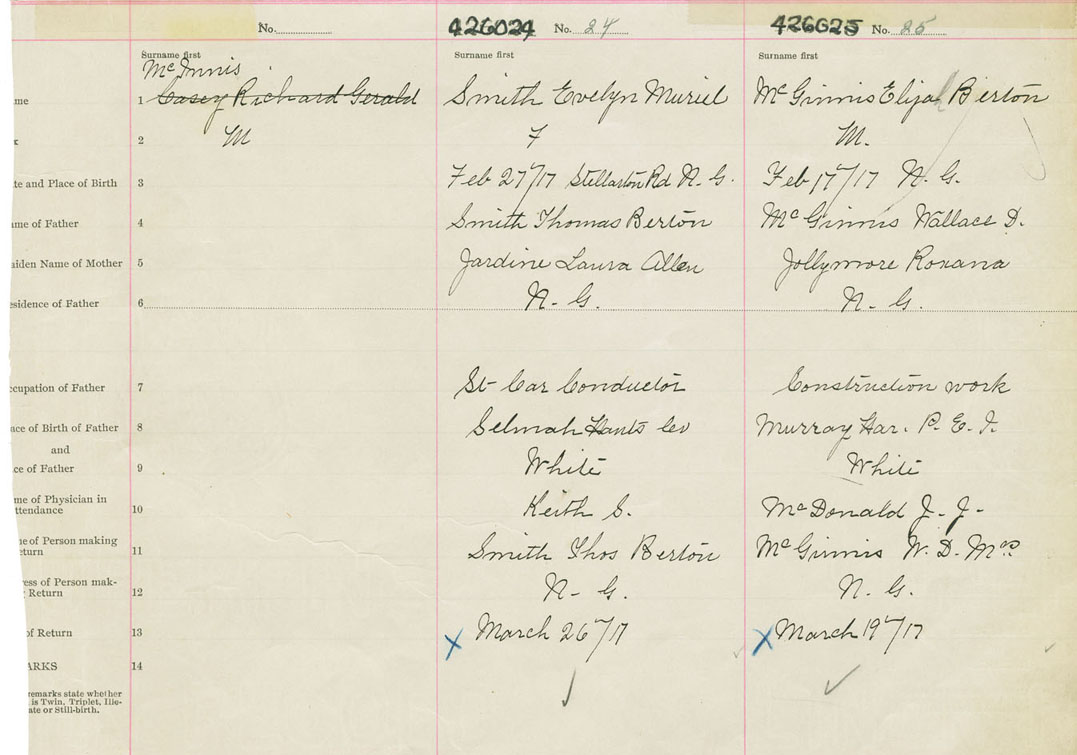 No.
426024 No. 24
426025 No. 25
Surname first
Surname first
Surname first
McInnis
me 1 Casey Richard Gerald Smith Evelyn Muriel McGinnis Elijah Berton
x 2 M F M.
te and Place of Birth 3 Feb 27/17 Stellarton Rd N. G. Feb 17/17 N. G.
ame of Father 4 Smith Thomas Berton McGinnis Wallace D.
aiden Name of Mother 5 Jardine Laura Allen Jollymore Roxana
esidence of Father 6 N. G. N. G.
ccupation of Father 7 St Car Conductor Construction work
ace of Birth of Father 8 Selmah Hants Co Murray Har. P. E. I.
and
ce of Father 9 White White
me of Physician in
ttendance 10 Keith S. McDonald J. J.
e of Person making
eturn 11 Smith Thos Berton McGinnis W. D. Mrs
ress of Person mak-
Return 12 N. G. N. G.
of Return 13 X March 26/17 X March 19/17
ARKS 14
remarks state whether
is Twin, Triplet, Ille-
ate or Still-birth.